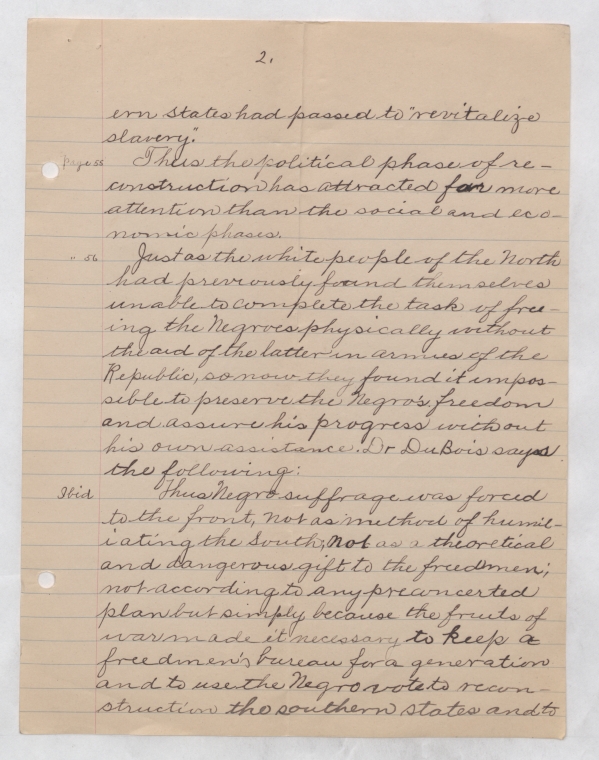 2.
ern states had passed to "revitalize
slavery."
Page 55 Thus the political phase of re-
construction has attracted far more
attention than the social and eco-
nomic phases.
" 56 Just as the white people of the North
had previously found themselves
unable to complete the task of free-
ing the Negroes physically without
the aid of the latter in armies of the
Republic, so now they found it impos-
sible to preserve the Negro's freedom
and assure his progress without
his own assistance. Dr DuBois says
the following:
Ibid Thus Negro suffrage was forced
to the front, not as method of humil-
iating the South; not as a theoretical
and dangerous gift to the freedmen;
not according to any preconcerted
plan but simply because the fruits of
war made it necessary to keep a
freedmen's bureau for a generation
and to use the Negro vote to recon-
struction the southern states and to